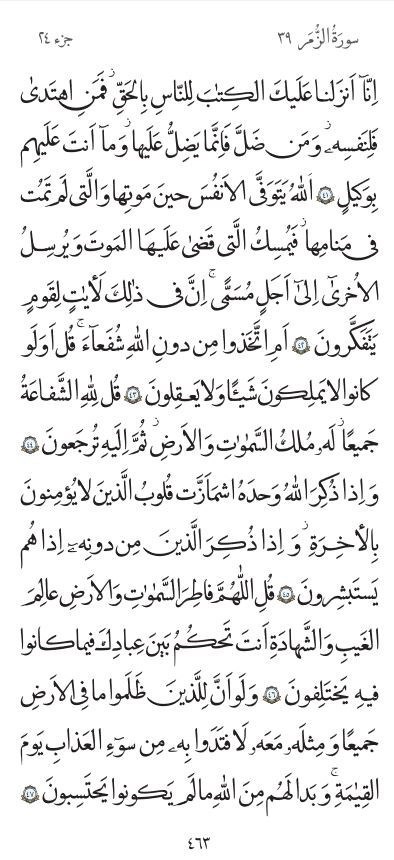 سورَةُ الزُّمَر ٣٩ جزء ٢٤
اِنّآ اَنزَلنا عَلَيكَ الكِتٰبَ لِلنّاسِ بِالحَقِّ ۖ فَمَنِ اهتَدىٰ
فَلِنَفسِهِۦ ۖ وَ مَن ضَلَّ فَاِنَّما يَضِلُّ عَلَيها ۖ وَ مآ اَنتَ عَلَيهِم
بِوَكيلٍ ﴿٤١﴾ اَللهُ يَتَوَفَّى الاَنفُسَ حينَ مَوتِها وَالَّتى لَم تَمُت
فى مَنامِها ۖ فَيُمسِكُ الَّتى قَضىٰ عَلَيهَا المَوتَ وَ يُرسِلُ
الاُخرىٰٓ اِلىٰٓ اَجَلٍ مُسَمًّى ۚ اِنَّ فى ذٰلِكَ لَأٰيٰتٍ لِقَومٍ
يَتَفَكَّرونَ ﴿٤٢﴾ اَمِ اتَّخَذوا مِن دونِ اللهِ شُفَعآءَ ۚ قُل اَوَلَو
كانوا لا يَملِكونَ شَيـًٔا وَ لا يَعقِلونَ ﴿٤٣﴾ قُل لِلّٰهِ الشَّفاعَةُ
جَميعًا ۖ لَهُۥ مُلكُ السَّمٰوٰتِ وَ الاَرضِ ۖ ثُمَّ اِلَيهِ تُرجَعونَ ﴿٤٤﴾
وَ اِذا ذُكِرَ اللهُ وَحدَهُ اشمَاَزَّت قُلوبُ الَّذينَ لا يُؤمِنونَ
بِالأٰخِرَةِ ۖ وَ اِذا ذُكِرَ الَّذينَ مِن دونِهِۦٓ اِذا هُم
يَستَبشِرونَ ﴿٤٥﴾ قُلِ اللّٰهُمَّ فاطِرَ السَّمٰوٰتِ وَ الاَرضِ عالِمَ
الغَيبِ وَ الشَّهادَةِ اَنتَ تَحكُمُ بَينَ عِبادِكَ فيما كانوا
فيهِ يَختَلِفونَ ﴿٤٦﴾ وَ لَو اَنَّ لِلَّذينَ ظَلَموا ما فِى الاَرضِ
جَميعًا وَ مِثلَهُۥ مَعَهُۥ لَافتَدَوا بِهِۦ مِن سوٓءِ العَذابِ يَومَ
القِيٰمَةِ ۚ وَ بَدا لَهُم مِنَ اللهِ ما لَم يَكونوا يَحتَسِبونَ ﴿٤٧﴾
٤٦٣